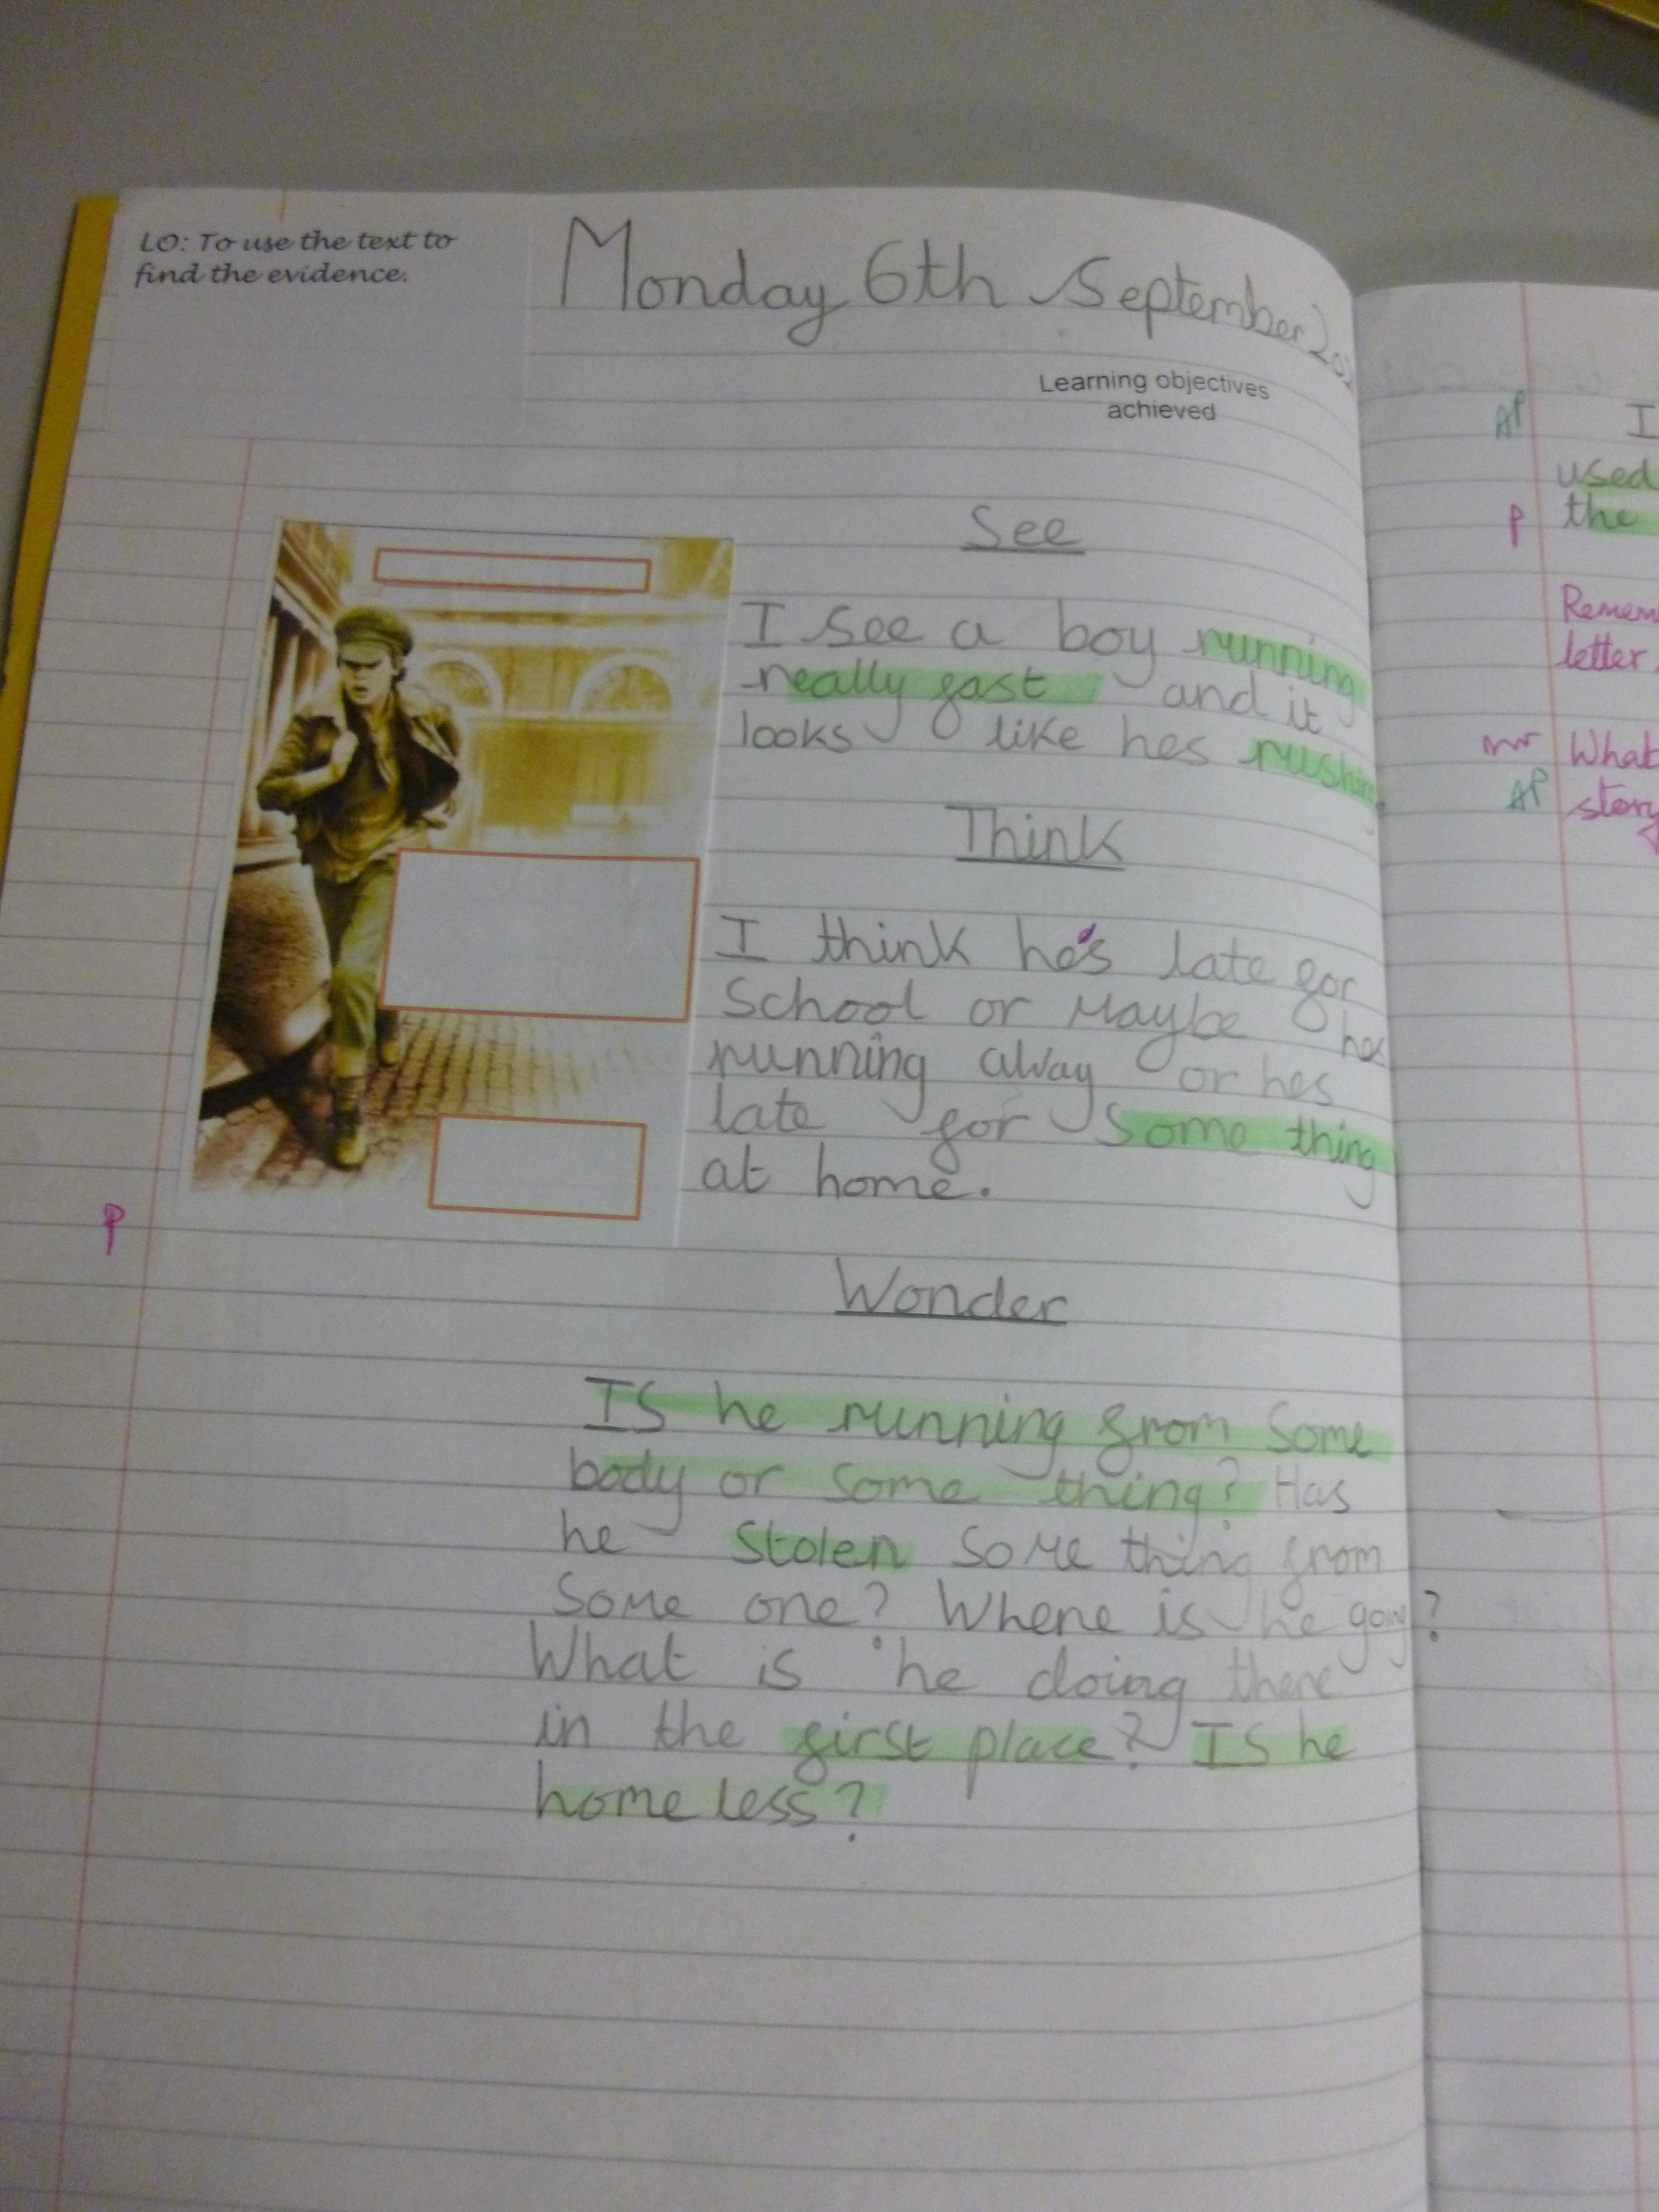 LO: To use the text to
find the evidence.
Monday 6th September
Learning objectives
achieved
See
I see a boy running
really fast and it
looks like hes rushing
Think
I think he's late for
School or Maybe hes
running away or hes
late for Some thing
at home.
P
Wonder
IS he running from Some
body or Some thing? Has
he Stolen Some thing from
Some one? Where is he going?
What is he doing there
in the first place? IS he
homeless?
AP
I
used
P
the
Remem
letter
What
AP
story